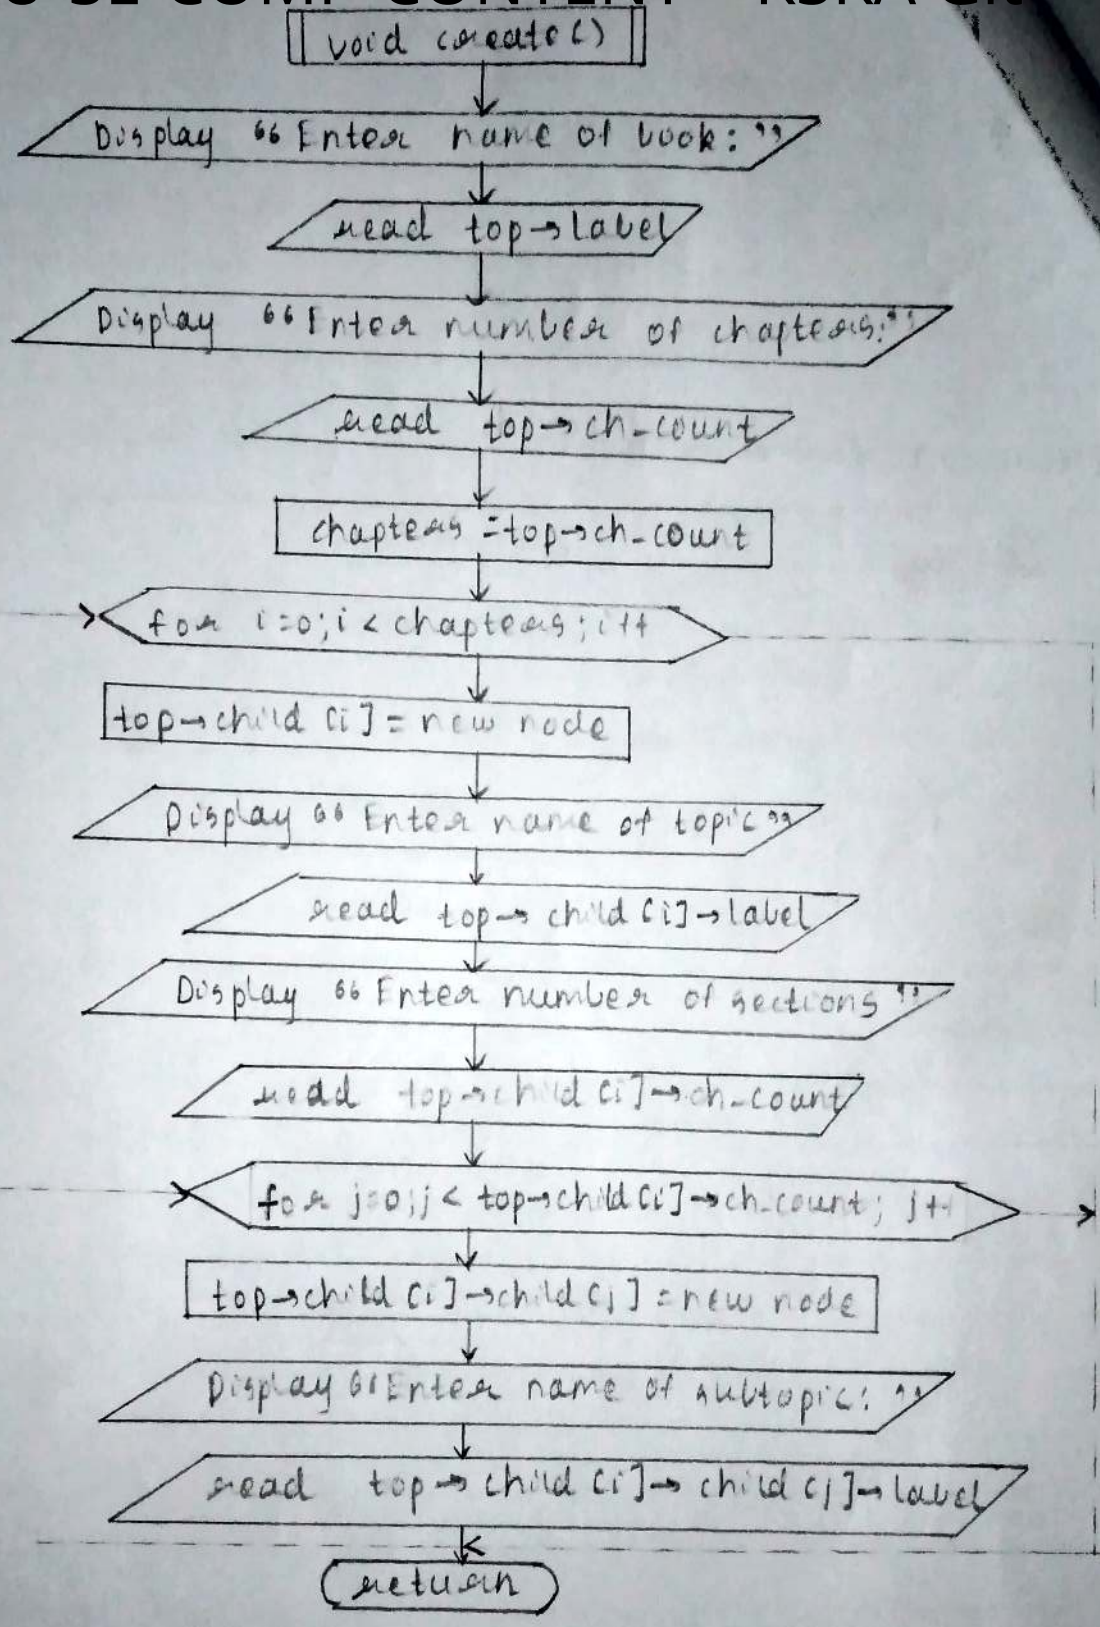 void create()
Display "Enter name of book:"
read top→label
Display "Enter number of chapters:"
read top→ch_count
chapters =top→ch_count
for i=0;i < chapters;i++
top→child [i]=new node
Display "Enter name of topic"
read top→ child [i]→label
Display "Enter number of sections"
read top→child [i]→ch_count
for j=0;j < top→child[i]→ch_count; j++
top→child [i]→child [j] =new node
Display "Enter name of subtopic: "
read top→ child [i]→ child [j]→label
return